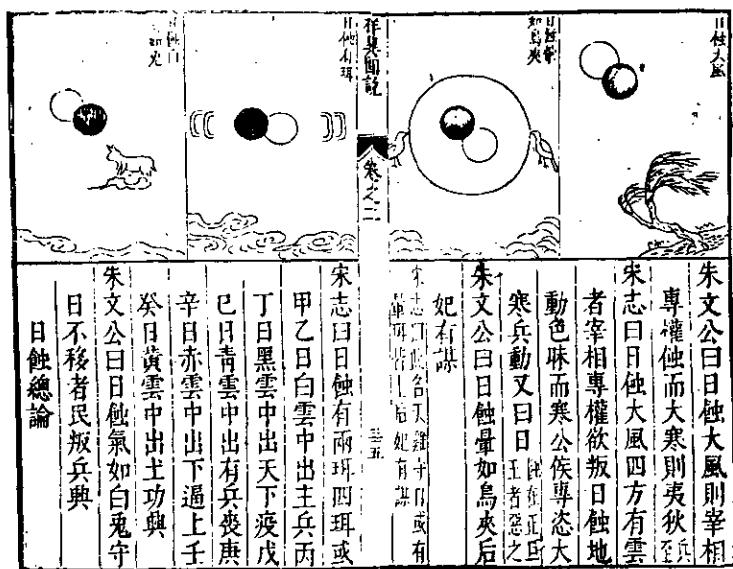 日蝕大風
日蝕暈
如烏夾
祥異圖說
卷之二
日蝕有珥
日蝕白
朱文公曰日蝕大風則宰相
專權蝕而大寒則夷狄兵至
宋志曰日蝕大風四方有雲
者宰相專權欲叛日蝕地
動色昧而寒公侯專恣大
寒兵動又曰日
王者惡之
朱文公曰日蝕暈如烏夾后
妃有謀
宋志曰日蝕有兩珥四珥或
甲乙日白雲中出主兵丙
丁日黑雲中出天下疫戊
巳日青雲中出有兵喪庚
辛日赤雲中出下逼上壬
癸日黃雲中出土功興
朱文公曰日蝕氣如白兎守
日不移者民叛兵興
日蝕總論